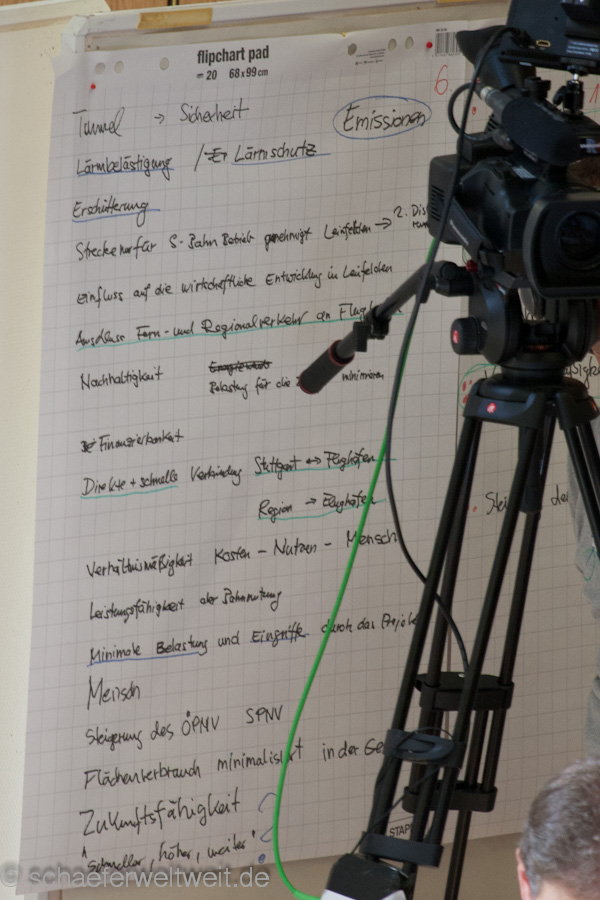 flipchart pad
20 68x99cm
6
Tunnel → Sicherheit
Emissionen
Lärmbelästigung / Lärmschutz
Erschütterung
Strecke nur für S-Bahn Betrieb genehmigt Leinfelden → 2. Dis
einfluss auf die wirtschaftliche Entwicklung in Leinfelden
Anschluss Fern- und Regionalverkehr an Flugh
Nachhaltigkeit
Belastung für die minimieren
Finanzierbarkeit
Direkte + schnelle Verbindung Stuttgart ↔ Flughafen
Region → Flughafen
Verhältnismäßigkeit Kosten - Nutzen - Mensch
Leistungsfähigkeit der Bahnnutzung
Minimale Belastung und Eingriffe durch das Projekt
Mensch
Steigerung des ÖPNV SPNV
Flächenverbrauch minimalisiert in der Ge
Zukunftsfähigkeit
"schneller, höher, weiter"
STAP
© schaeferweltweit.de